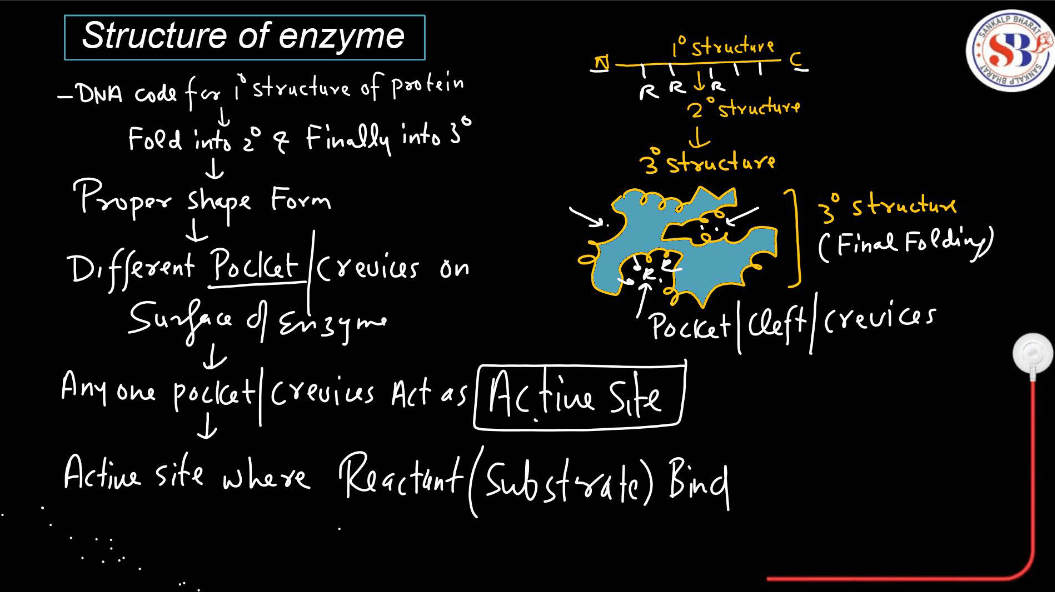 Structure of enzyme
– DNA code for 1° structure of protein
↓
Fold into 2° & Finally into 3°
↓
Proper shape Form
↓
Different Pocket/Crevices on
Surface of Enzyme
↓
Any one pocket/Crevices Act as Active Site
↓
Active site where Reactant (Substrate) Bind
1° structure
N C
R R R
↓
2° structure
↓
3° structure
R R
3° structure
(Final Folding)
Pocket/Cleft/Crevices
SANKALP BHARAT
SB
SANKALP BHARAT